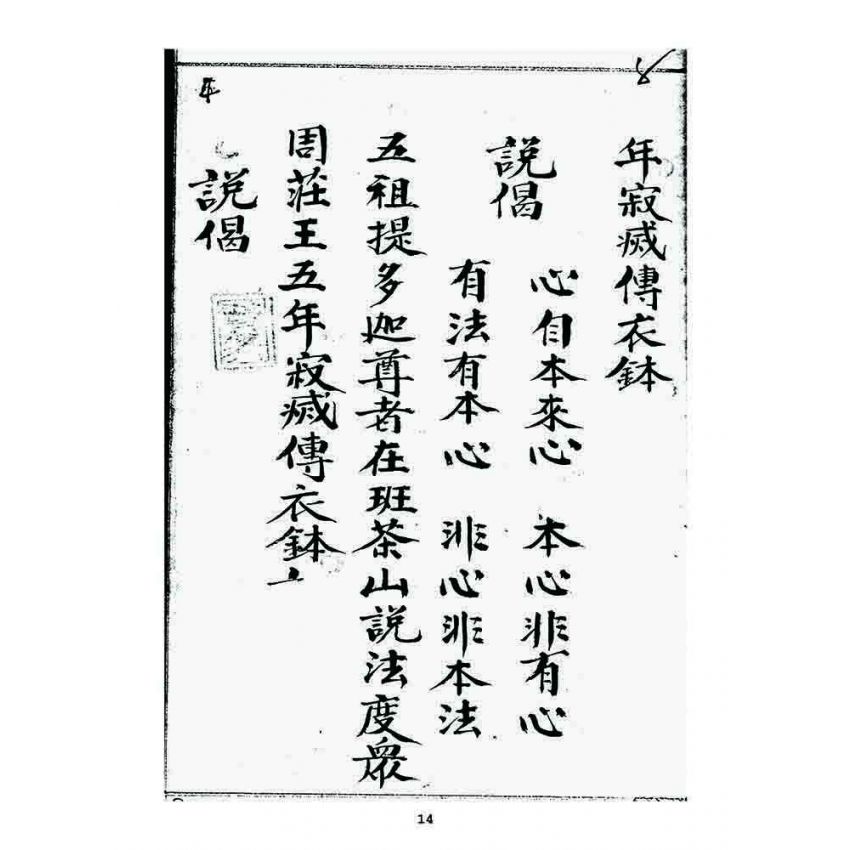 年寂滅傳衣鉢
說偈
心自本來心 本心非有心
有法有本心 非心非本法
五祖提多迦尊者在班茶山說法度眾
周莊王五年寂滅傳衣鉢
說偈
14